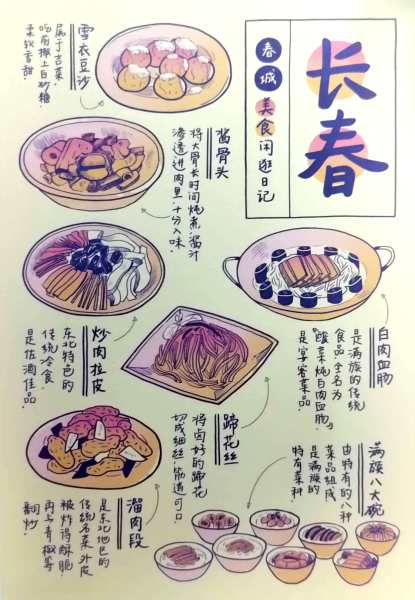 长春
春城
美食闲逛日记
雪衣豆沙
属于吉菜,
吃前撒上白砂糖
柔软香甜.
酱骨头
将大骨长时间炖煮,酱汁
渗透进肉里,十分入味.
炒肉拉皮
东北特色的
传统冷食
是佐酒佳品.
白肉血肠
是满族的传统
食品,全名为
“酸菜炖白肉血肠”
是宴客菜品.
蹄花丝
将卤好的蹄花
切成细丝,筋道可口
溜肉段
是东北地区的
传统名菜,外皮
被炸得酥脆
再与青椒等
翻炒.
满族八大碗
由特有的八种
菜品组成
是满族的
特有菜种